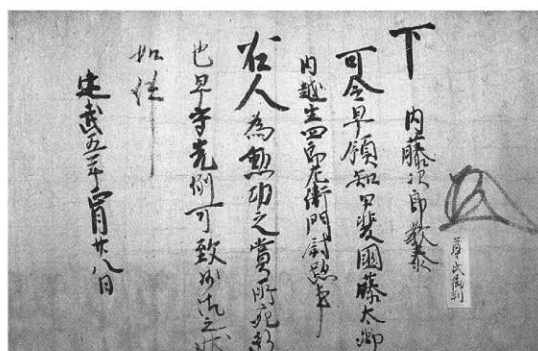 尊氏御判
下 内藤次郎教泰
可令早領知甲斐國藤太郷
内越生四郎左衛門尉跡事
右人為勲功之賞所宛行
也早守先例可致沙汰之状
如件
建武五年四月廿八日